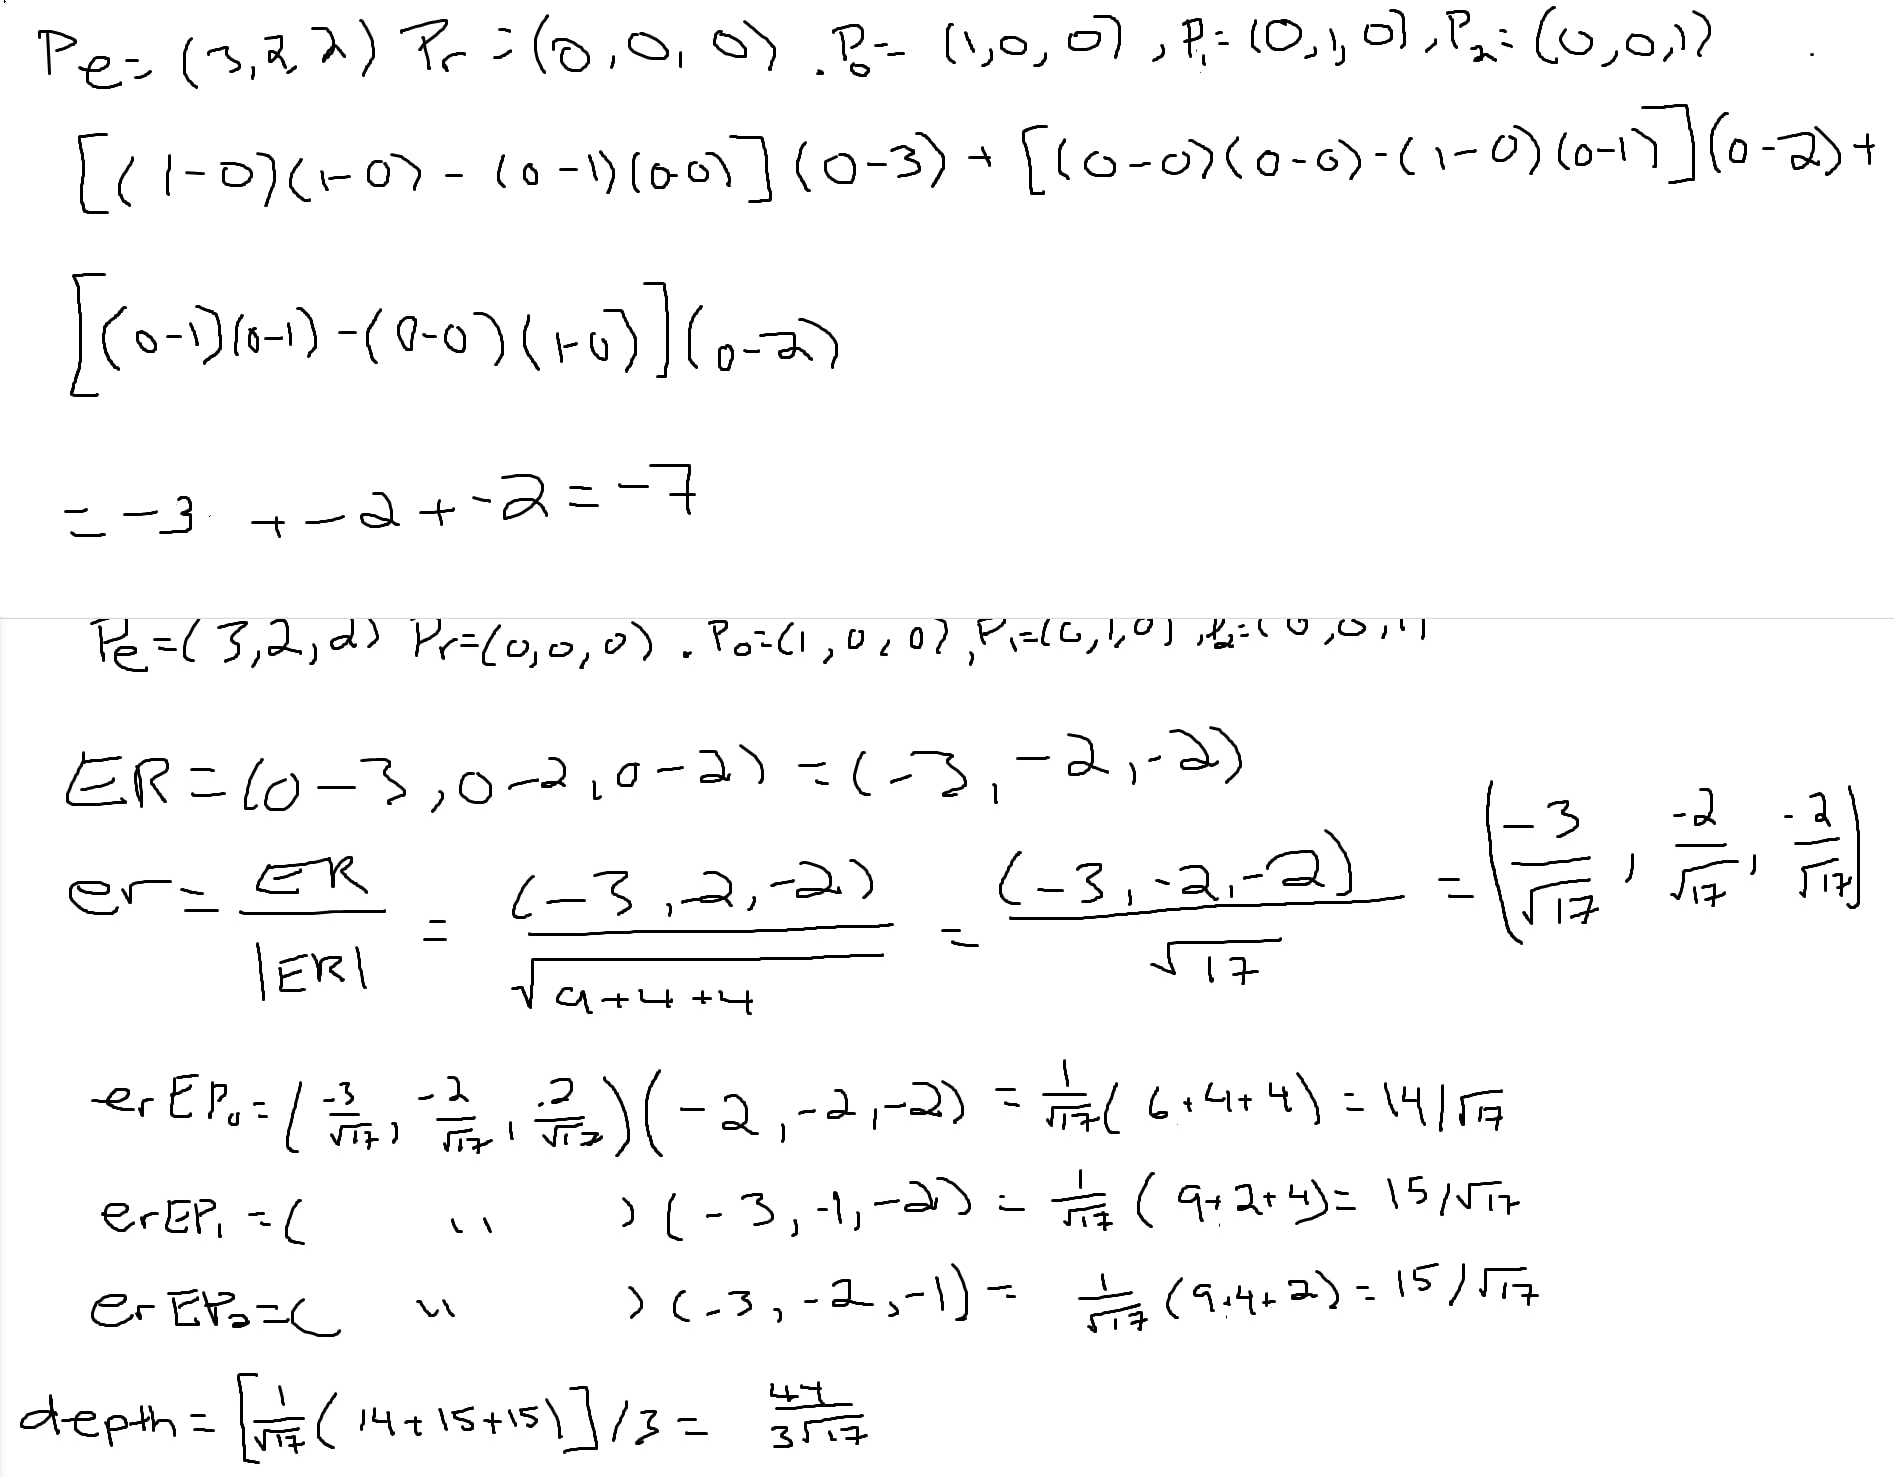 Pe= (3,2,2) Pr = (0,0,0) . P0= (1,0,0), P1= (0,1,0), P2= (0,0,1)
[(1-0)(1-0) - (0-1)(0-0)] (0-3) + [(0-0)(0-0)-(1-0)(0-1)](0-2)+
[(0-1)(0-1) -(0-0)(1-0)](0-2)
= -3 + -2 + -2 = -7
Pe=(3,2,2) Pr=(0,0,0) . P0=(1,0,0), P1=(0,1,0), P2=(0,0,1)
ER = (0-3, 0-2, 0-2) = (-3, -2, -2)
er = ER/|ER| = (-3,-2,-2)/√(9+4+4) = (-3,-2,-2)/√17 = (-3/√17, -2/√17, -2/√17)
erEP0= (-3/√17, -2/√17, -2/√17)(-2,-2,-2) = 1/√17 (6+4+4) = 14/√17
erEP1 =( " )(-3,-1,-2) = 1/√17 (9+2+4)= 15/√17
erEP2=( " )(-3,-2,-1) = 1/√17 (9+4+2) = 15/√17
depth = [1/√17 (14+15+15)]/3 = 44/3√17